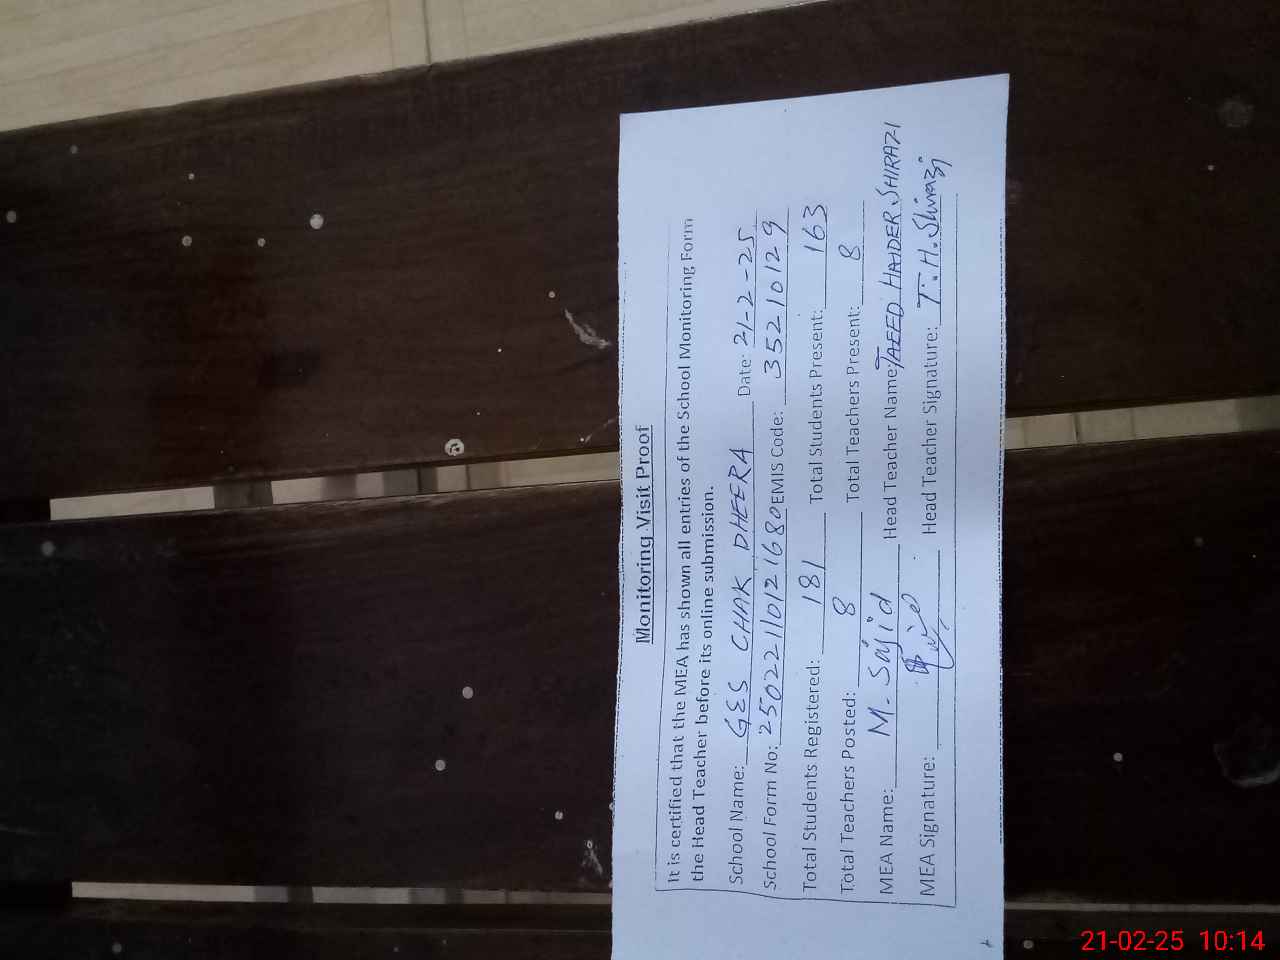 Monitoring Visit Proof
It is certified that the MEA has shown all entries of the School Monitoring Form
the Head Teacher before its online submission.
School Name: GES CHAK DHEERA Date: 21-2-25
School Form No: 25022110121680 EMIS Code: 35210129
Total Students Registered: 181 Total Students Present: 163
Total Teachers Posted: 8 Total Teachers Present: 8
MEA Name: M. Sajid Head Teacher Name: TAEED HAIDER SHIRAZI
MEA Signature: Head Teacher Signature: T.H.Shirazi
21-02-25 10:14